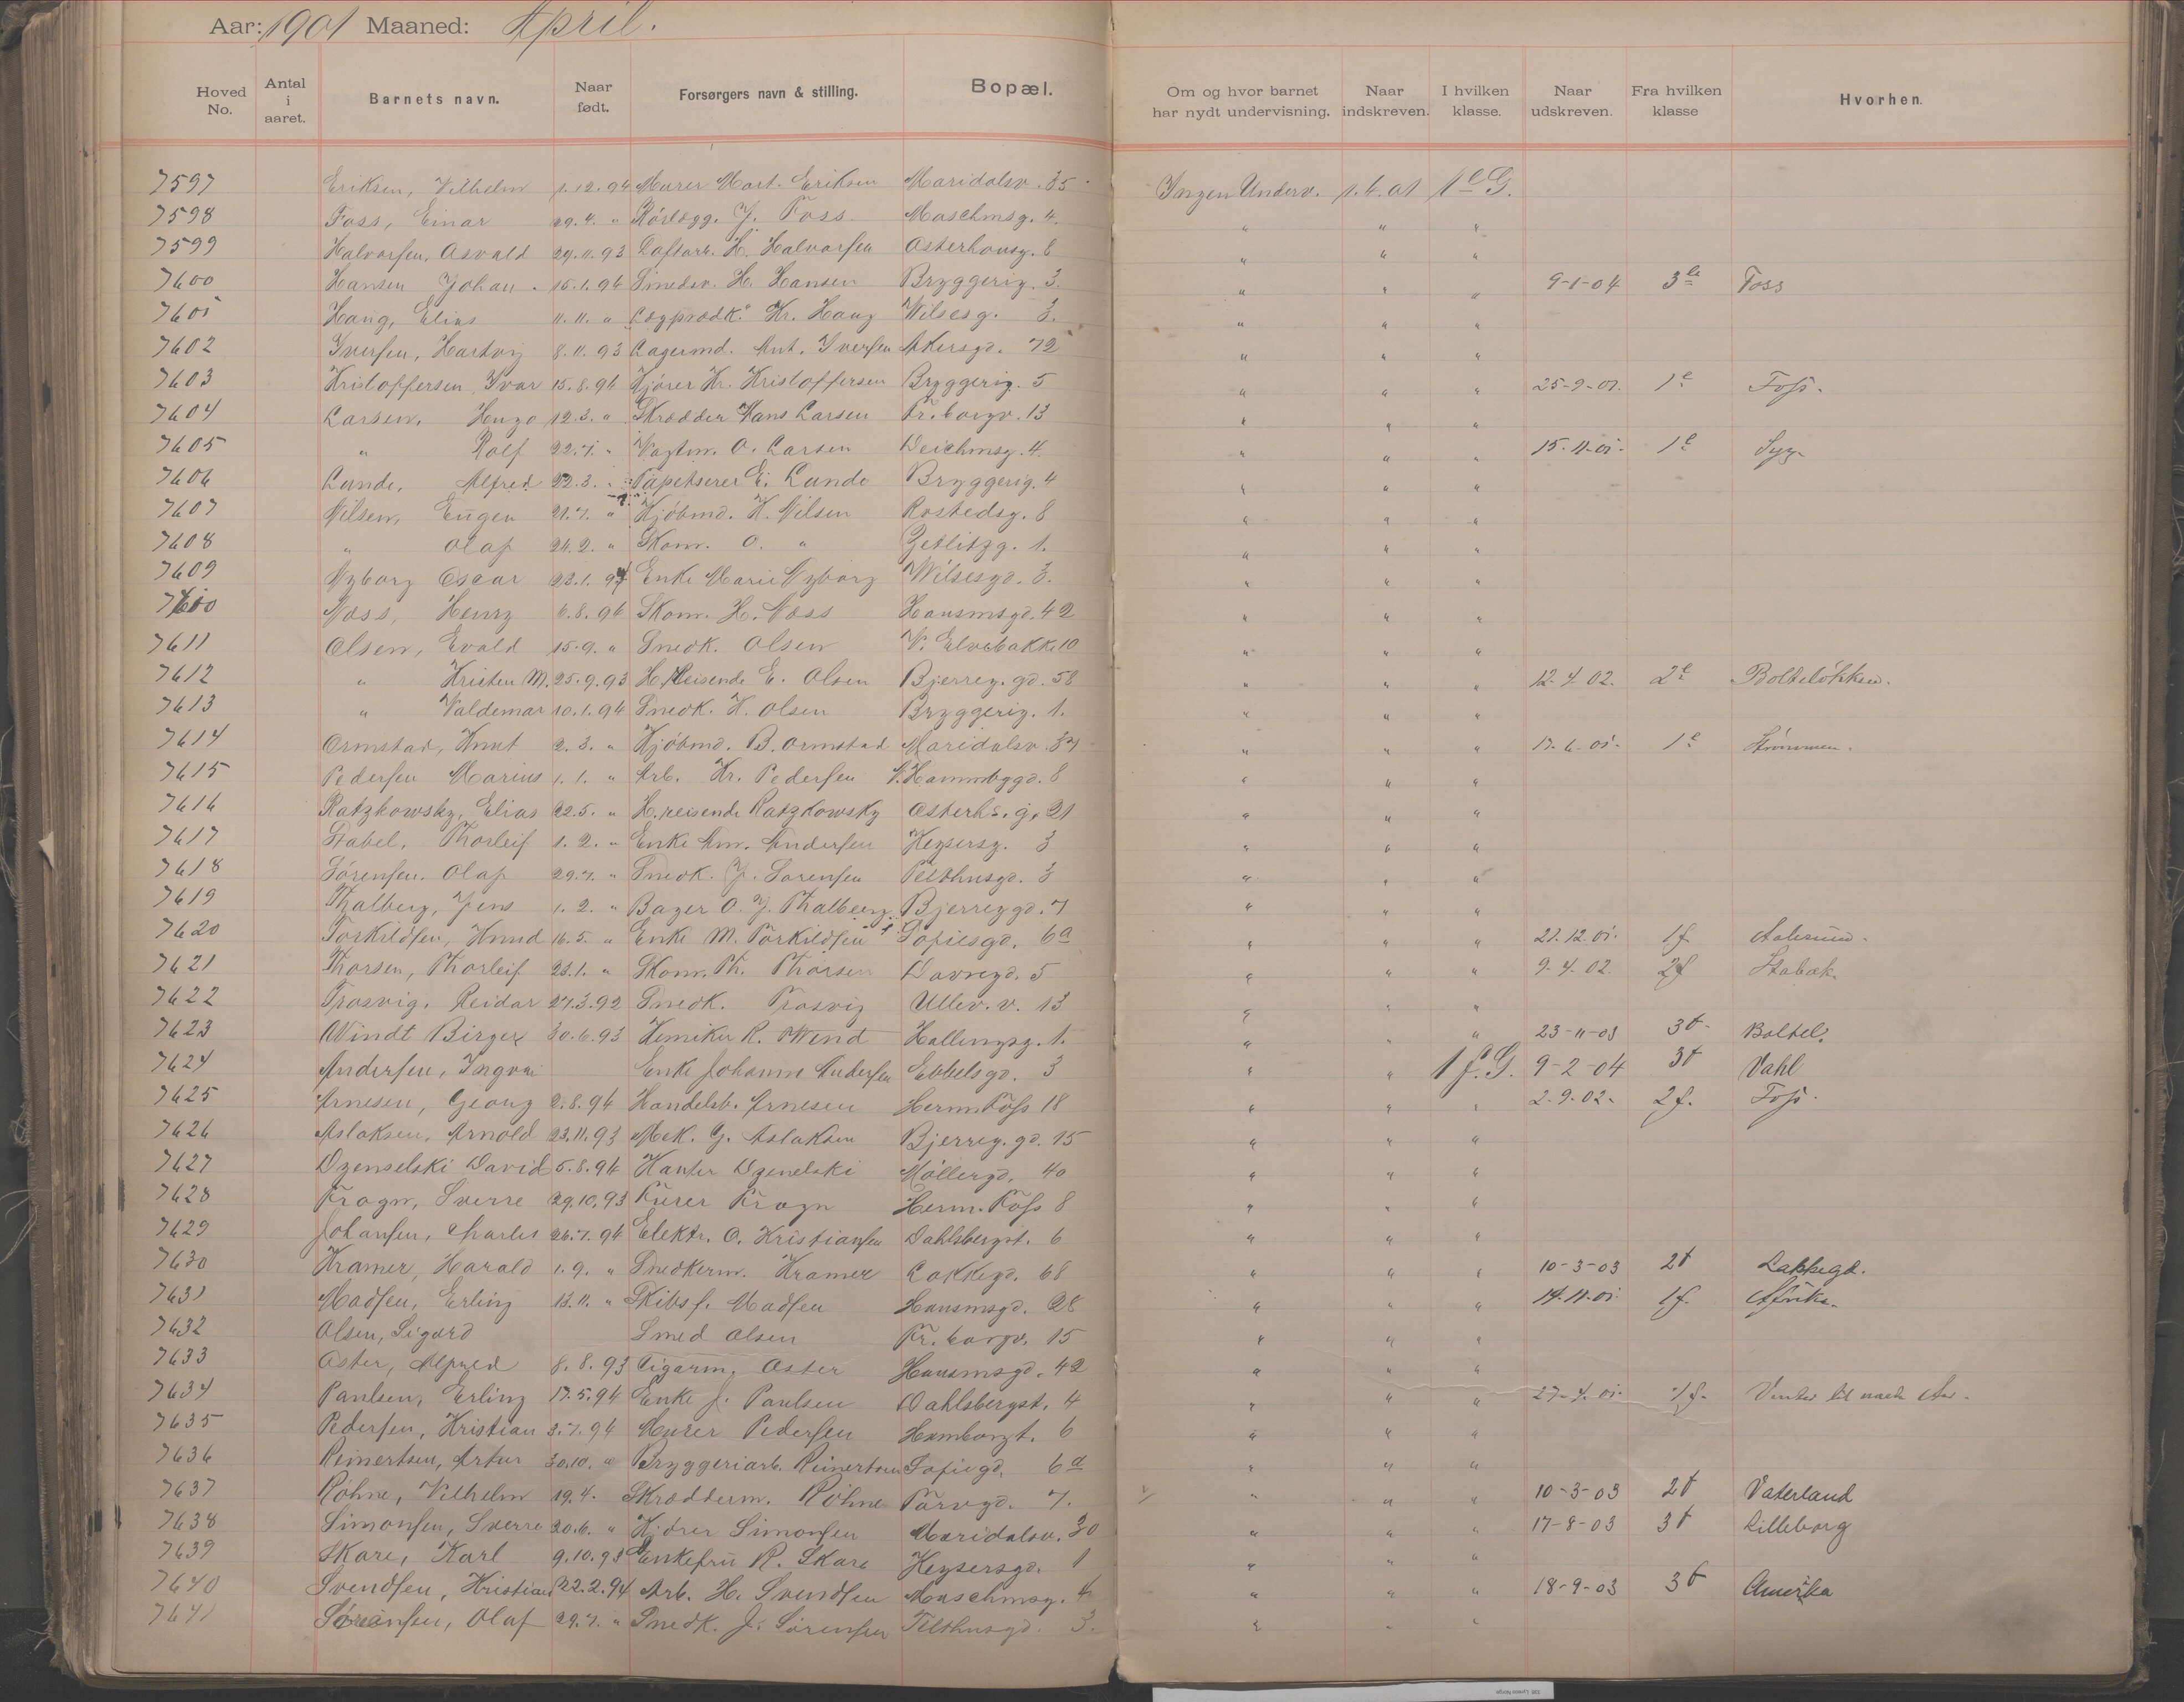 Aar: 1901 Maaned: April.
Hoved No. Antal i aaret. Barnets navn. Naar født. Forsørgers navn & stilling. Bopæl. Om og hvor barnet har nydt undervisning. Naar indskreven. I hvilken klasse. Naar udskreven. Fra hvilken klasse Hvorhen.
7597 Eriksen, Vilhelm 1.12.94 Murer Mart. Eriksen Maridalsv. 35 Ingen Underv. 1.4.01 1e G.
7598 Foss, Einar 29.4. " Rörlægg. J. Foss Maschmsg. 4. " " "
7599 Halvorsen, Asvald 29.11.93 H. Halvorsen Osterhausg. 6 " " "
7600 Hansen Johan. 15.1.94 Smedsv. H. Hansen Bryggerig. 3. " " " 9-1-04 3 Foss
7601 Haug, Elias 11.11. " Kr. Haug Wilsesg. 3. " " "
7602 Iversen, Hartvig 8.11.93 Lagermd. Ant. Iversen Akersgd. 72 " " "
7603 Kristoffersen, Ivar 15.8.94 Kjörer Kr. Kristoffersen Bryggerig. 5 " " " 25-9-01. 1e Foss.
7604 Larsen, Hugo 12.3. " Skrædder Hans Larsen Fr.borgv. 13 " " "
7605 " Rolf 22.7. " Vagtm. O. Larsen Deichmsg. 4. " " " 15.11.01. 1e Syg.
7606 Lunde, Alfred 22.3. " Tapetserer E. Lunde Bryggerig. 4 " " "
7607 Nilsen, Eugen 21.7. " Kjöbmd. K. Nilsen Rostedsg. 8 " " "
7608 " Olaf 24.2. " Skom. O. " Zetlitzg. 1. " " "
7609 Nyborg Oscar 23.1. 94 Enke Marie Nyborg Wilsesgd. 3. " " "
7610 Næss, Henry 6.8.94 Skom. H. Næss Hausmsgd. 42 " " "
7611 Olsen, Evald 15.9. " Snedk. Olsen V. Elvebakke 10 " " "
7612 " Kristen M. 25.9.93 H. Reisende E. Olsen Bjerreg.gd. 58 " " " 12.4.02. 2e Bolteløkken.
7613 " Valdemar 10.1.94 Snedk. K. Olsen Bryggerig. 1. " " "
7614 Ormstad, Knut 2.3. " Kjöbmd. B. Ormstad Maridalsv. 37 " " " 17.6.01. 1e Strømmen.
7615 Pedersen Marius 1.1. " Arb. Kr. Pedersen 8 " " "
7616 Ratzkowsky, Elias 22.5. " H. reisende Ratzkowsky Osterhs.g. 21 " " "
7617 Stabel, Thorleif 1.2. " Enke Am. Andersen Keysersg. 3 " " "
7618 Sörensen. Olaf 29.7. " Snedk. J. Sörensen Telthusgd. 3 " " "
7619 Thalberg, Jens 1.2. " Bager O. J. Thalberg Bjerreggd. 7 " " "
7620 Torkildsen, Knud 16.5. " Enke M. Torkildsen Sofiesgd. 6a " " " 21.12.01. 1f Aalesund.
7621 Thorsen, Thorleif 23.1. " Skom. Th. Thorsen Dovregd. 5 " " " 9.4.02. 2f Stabæk.
7622 Trosvig, Reidar 27.3.92 Snedk. Trosvig Ullev.v. 13 " " "
7623 Windt Birger 30.6.93 Kemiker R. Wind Hallingsg. 1. " " " 23-11-03 3f Boltel.
7624 Andersen, Ingvar Enke Johanne Andersen Ebbelsgd. 3 " " 1 f. G. 9-2-04 3f Vahl
7625 Arnesen, Georg 2.8.94 Handelsb. Arnesen Herm. Foss 18 " " " 2.9.02. 2f. Foss.
7626 Aslaksen, Arnold 23.11.93 Mek. G. Aslaksen Bjerreg.gd. 15 " " "
7627 Dzenselski David 5.8.94 Kantor Dzenelski Möllergd. 40 " " "
7628 Frogn, Sverre 29.10.93 Furer Frogn Herm. Foss 8 " " "
7629 Johansen, Charles 26.7.94 Elektr. O. Kristiansen Dahlsbergst. 6 " " "
7630 Kramer, Harald 1.9. " Snedkerm. Kramer Lakkegd. 68 " " " 10-3-03 2f Lakkegd.
7631 Madsen, Erling 13.11. " Skibsf. Madsen Hausmsgd. 28 " " " 14.11.01. 1f. Afrika.
7632 Olsen, Sigurd Smed Olsen Fr.borgv. 15 " " "
7633 Aster, Alfred 8.8.93 Cigarm. Aster Hausmsgd. 42 " " "
7634 Paulsen, Erling 17.5.94 Enke J. Paulsen Dahlsbergst. 4 " " " 27-4.01. 1f. Venter til næste Aar.
7635 Pedersen, Kristian 3.7.94 Murer Pedersen 6 " " "
7636 Reinertsen, Artur 30.10. " Bryggeriarb. Reinertsen Sofiegd. 6a " " "
7637 Röhne, Vilhelm 19.4. Skrædderm. Röhne Torvgd. 7. " " " 10-3-03 2f Vaterland
7638 Simonsen, Sverre 20.6. " Kjörer Simonsen Maridalsv. 30 " " " 17-8-03 3f Lilleborg
7639 Skare, Karl 9.10.93 Enkefru R. Skare Keysersgd. 1 " " "
7640 Svendsen, Kristian 22.2.94 Arb. H. Svendsen Maschmsg. 4 " " " 18-9-03 3f Amerika
7641 Sörensen, Olaf 29.7. " Snedk. J. Sörensen Telthusgd. 3. " " "